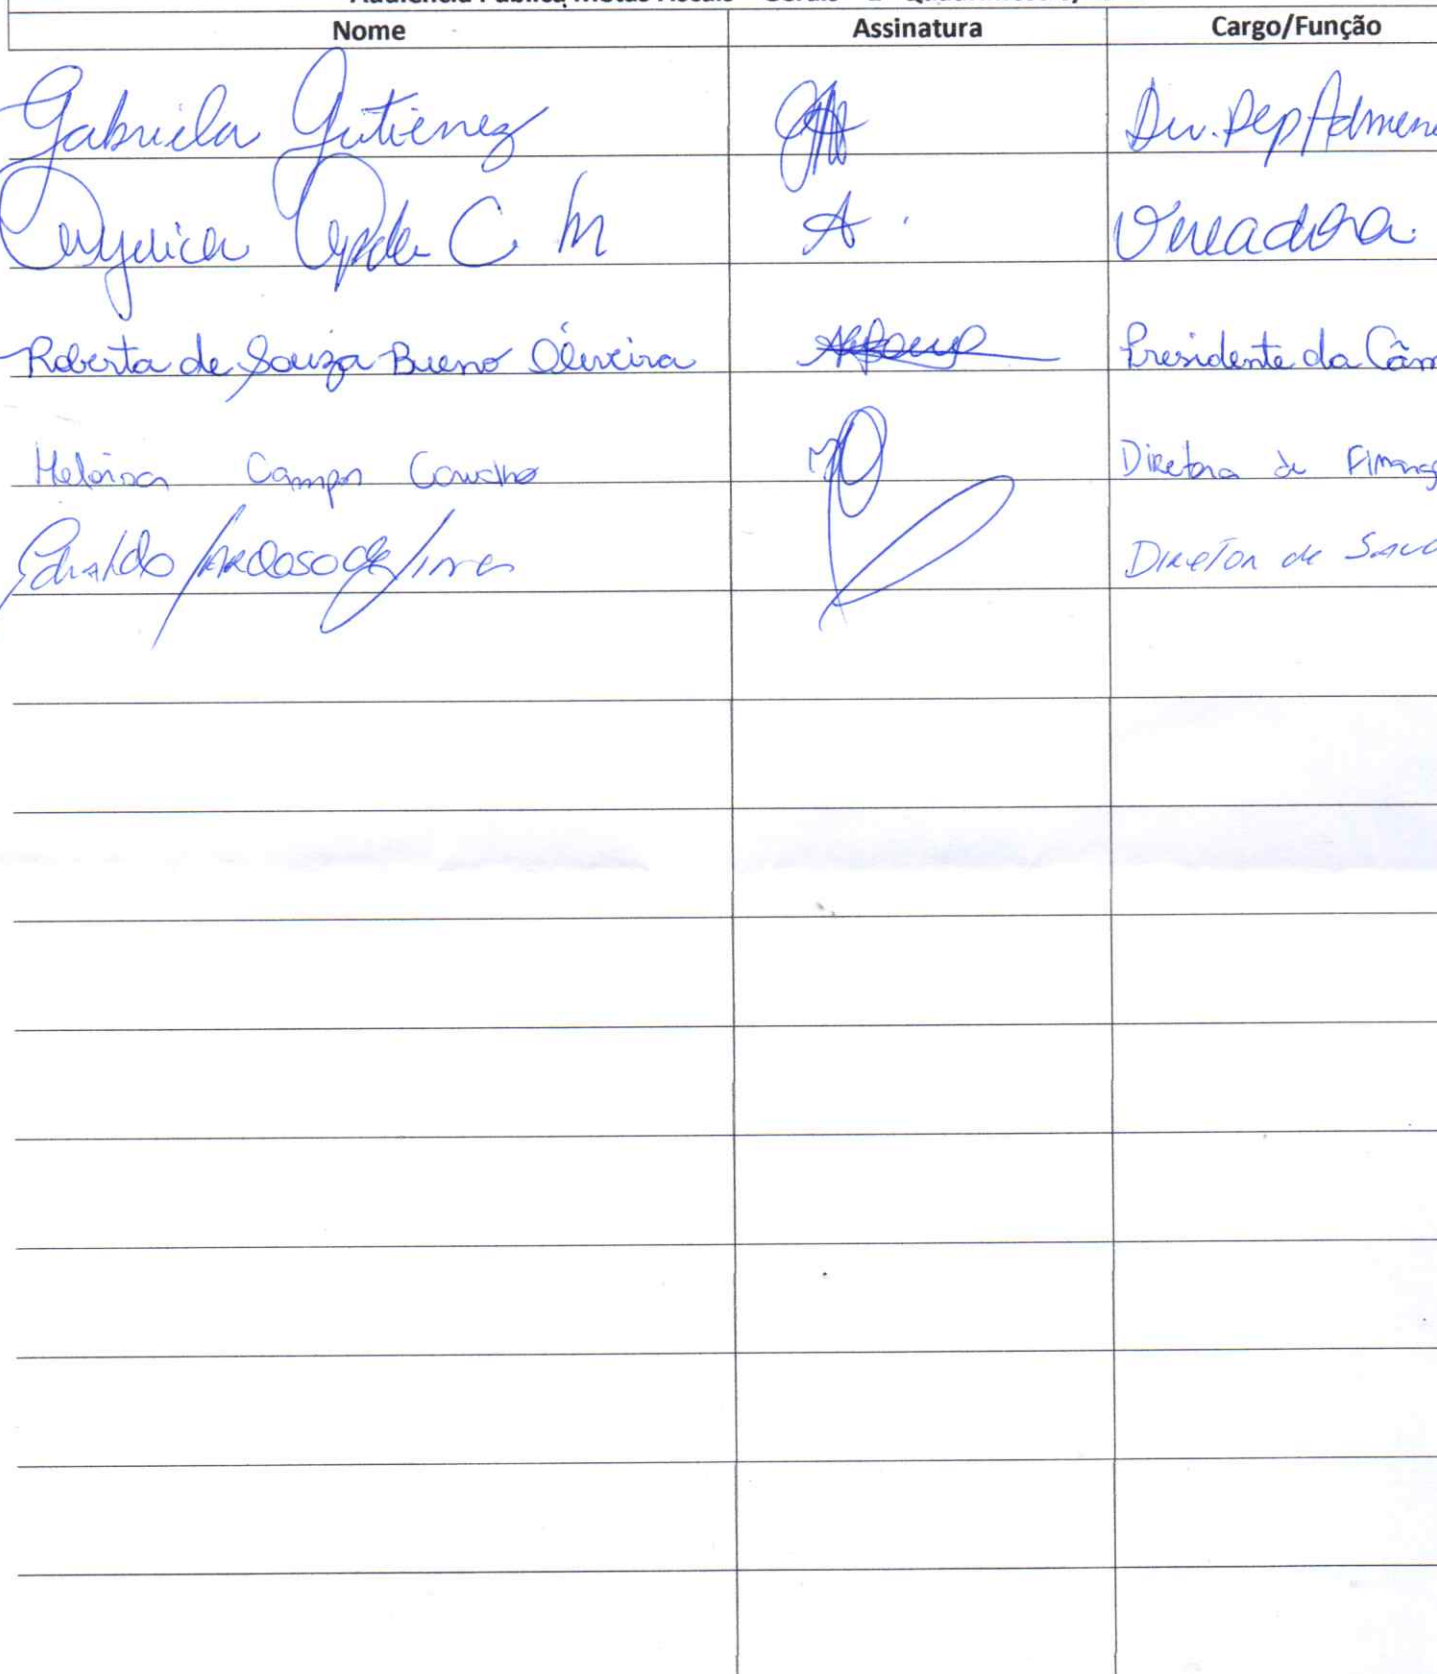 Nome Assinatura Cargo/Função
Gabriela Gutierrez Dir. Dep Admini
C M A. Vereadora.
Roberta de Souza Bueno Oliveira Presidente da Câm
Heloisa Campos Carvalho Diretora de Finanç
Cardoso de Diretor de Saúd